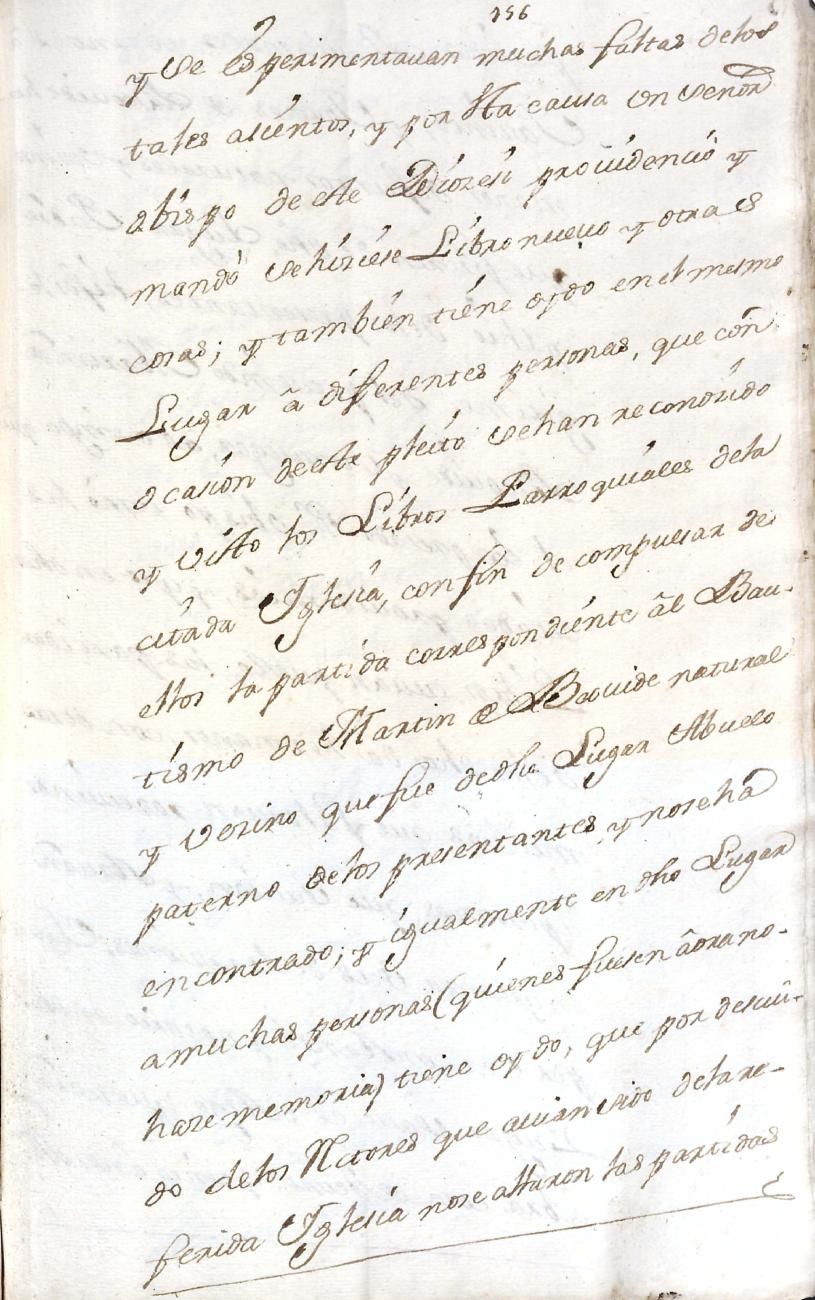 156
y se esperimentauan muchas faltas delos
tales asientos, y por sta causa un señor
obispo de este Diozesi prouidenció y
mandó se hiziese Libro nueuo y otras
cosas; y también tiene oydo en el mesmo
Lugar â diferentes personas, que con
ocasión deeste pleito sehan reconozido
y visto los Libros Parroquiales dela
citada Iglesia, con fin de compulsar de
ellos la partida correspondiente âl Bau-
tismo de Martin de Beouide natural
y vezino que fue dedho Lugar Abuelo
paterno delos presentantes, y nose hâ
encontrado; y igualmente en dho Lugar
amuchas personas (quienes fuesen âora no-
haze memoria) tiene oydo, que por descui-
do delos Rctores que auian sido dela re-
ferida Iglesia nose asturon las partidas